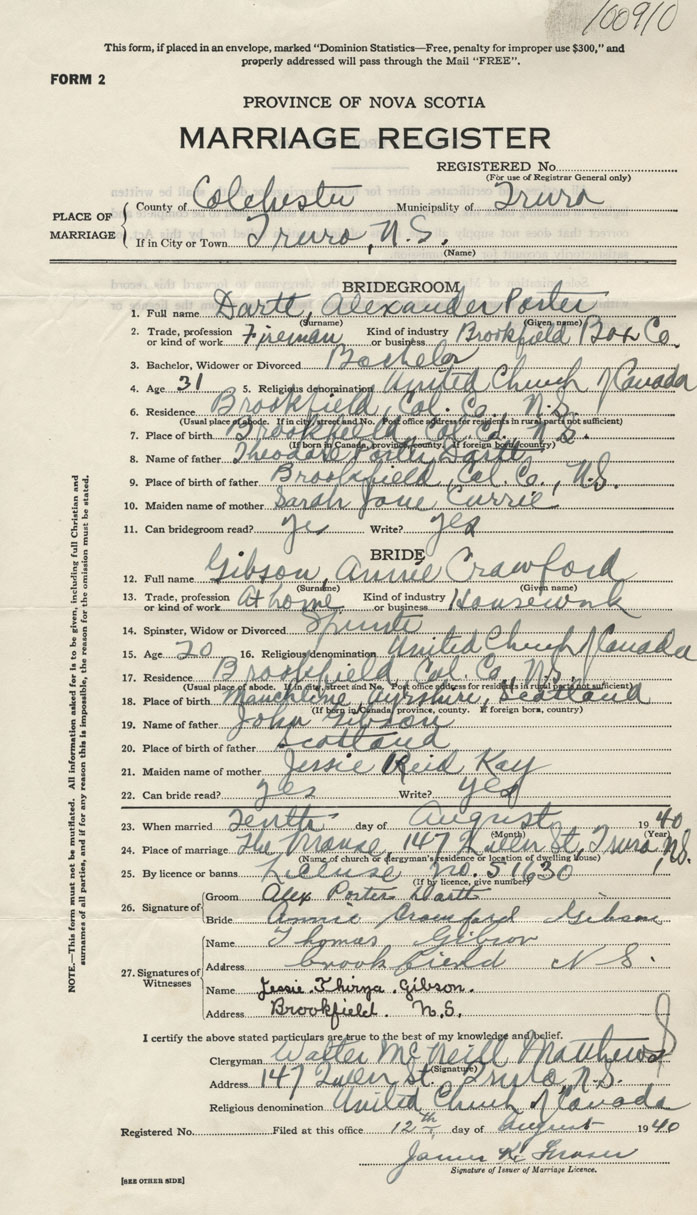 100910
This form, if placed in an envelope, marked "Dominion Statistics—Free, penalty for improper use $300," and
properly addressed will pass through the Mail "FREE".
FORM 2
PROVINCE OF NOVA SCOTIA
MARRIAGE REGISTER
REGISTERED No.
(For use of Registrar General only)
PLACE OF MARRIAGE
County of Colchester Municipality of Truro
If in City or Town Truro, N.S.
(Name)
BRIDEGROOM
1. Full name Dartt, Alexander Porter
(Surname) (Given name)
2. Trade, profession or kind of work Fireman Kind of industry or business Brookfield Box Co.
3. Bachelor, Widower or Divorced Bachelor
4. Age 31 5. Religious denomination United Church of Canada
6. Residence Brookfield, Col. Co., N.S.
(Usual place of abode. If in city, street and No. Post office address for residents in rural parts not sufficient)
7. Place of birth Brookfield, Col. Co., N.S.
(If born in Canada, province, county. If foreign born, country)
8. Name of father Theodore Porter Dartt
9. Place of birth of father Brookfield, Col. Co., N.S.
10. Maiden name of mother Sarah Jane Currie
11. Can bridegroom read? yes Write? yes
BRIDE
12. Full name Gibson, Annie Crawford
(Surname) (Given name)
13. Trade, profession or kind of work At home Kind of industry or business Housework
14. Spinster, Widow or Divorced Spinster
15. Age 20 16. Religious denomination United Church of Canada
17. Residence Brookfield, Col. Co., N.S.
(Usual place of abode. If in city, street and No. Post office address for residents in rural parts not sufficient)
18. Place of birth Mauchline, Ayrshire, Scotland
(If born in Canada, province, county. If foreign born, country)
19. Name of father John Gibson
20. Place of birth of father Scotland
21. Maiden name of mother Jessie Reid Kay
22. Can bride read? yes Write? yes
23. When married Tenth day of August 1940
(Month) (Year)
24. Place of marriage The Manse, 147 Queen St., Truro, N.S.
(Name of church or clergyman's residence or location of dwelling house)
25. By licence or banns License No. 51630
(If by licence, give number)
26. Signature of
Groom Alex Porter Dartt
Bride Annie Crawford Gibson
27. Signatures of Witnesses
Name Thomas Gibson
Address Brookfield N S.
Name Jessie Thirza Gibson.
Address Brookfield. N.S.
I certify the above stated particulars are true to the best of my knowledge and belief.
Clergyman Walter McNeill Matthews
(Signature)
Address 147 Queen St. Truro, N.S.
Religious denomination United Church of Canada
Registered No. Filed at this office 12th day of August 1940
James K. Fraser
Signature of Issuer of Marriage Licence.
[SEE OTHER SIDE]
NOTE.—This form must not be mutilated. All information asked for is to be given, including full Christian and
surnames of all parties, and if for any reason this is impossible, the reason for the omission must be stated.